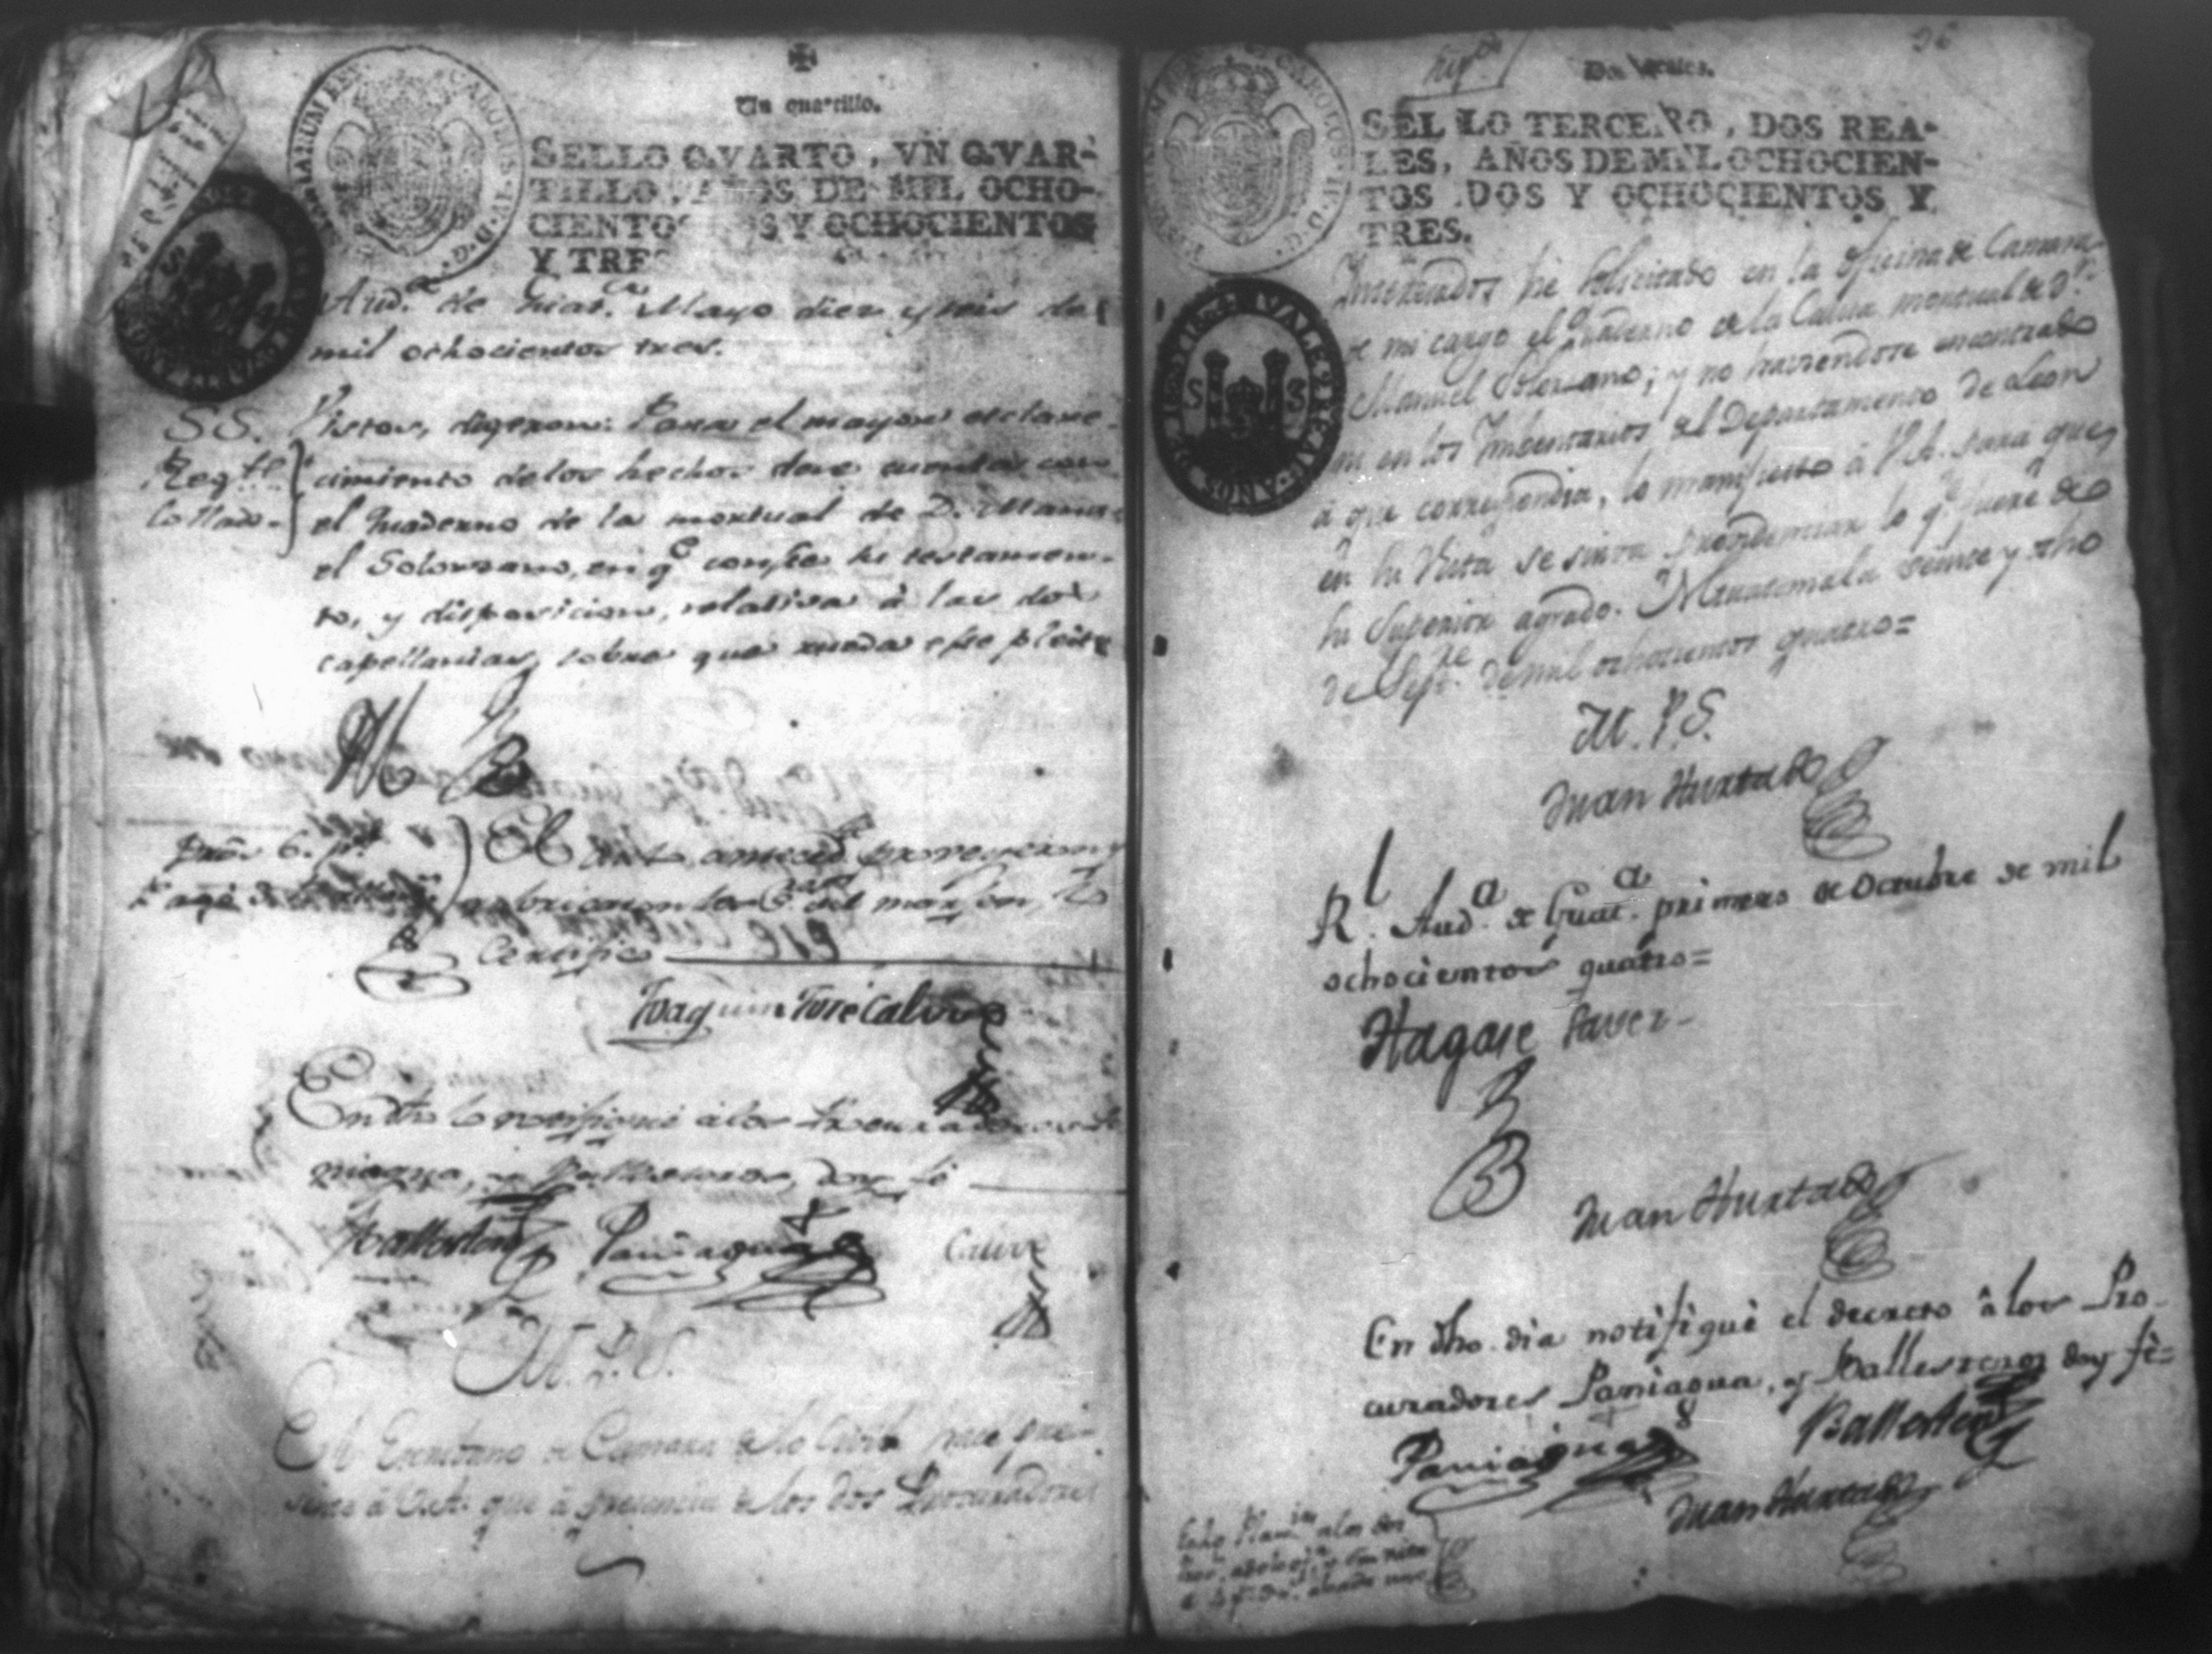 Un quartillo.
SELLO QVARTO, VN QVAR-
TILLO, AÑOS DE MIL OCHO-
CIENTOS DOS Y OCHOCIENTOS
Y TRES
Aud.ª de Guat.ª Mayo diez y seis de
mil ochocientos tres.
SS.
Reg.te
Collado
Vistos, digeron: Para el mayor esclare-
cimiento de los hechos dese cuenta con
el Quaderno de la mortual de D. Manu-
el Solorzano, en q.e conste su testamen-
to, y disposicion, relativa à las dos
capellanias, sobre que rueda este pleito
El auto anteced.te proveyeron y
rubricaron los S.res del margen, lo
Certifico
Joaquin José Calvo
En dho lo notifiqué a los Procuradores Pa-
niagua, y Ballesteros, doy fé
Ballesteros Paniagua Calvo
M. P. S.
El Escribano de Camara de lo Civil hace pre-
sente à V.A. que à presencia de los dos Procuradores
96
Dos reales.
SELLO TERCERO, DOS REA-
LES, AÑOS DE MIL OCHOCIEN-
TOS DOS Y OCHOCIENTOS Y
TRES.
VALE P.R EL REAL
S S
Interesados he solicitado en la oficina de Camara
de mi cargo el Quaderno de la Causa mortual de D.n
Manuel Solorzano; y no haviendose encontrado
ni en los Imbentarios del Departamento de Leon
à que correspondia, lo manifiesto à V.A. para que,
en su Vista se sirva providenciar lo q.e fuere de
su Superior agrado. Guatemala veinte y ocho
de Sept.re de mil ochocientos quatro=
M. P. S.
Juan Hurtado
R.l Aud.ª de Guat.ª primero de Octubre de mil
ochocientos quatro=
Hagase saver-
Juan Hurtado
En dho. dia notifiqué el decreto à los Pro-
curadores Paniagua, y Ballesteros doy fé=
Paniagua Ballesteros
Juan Hurtado